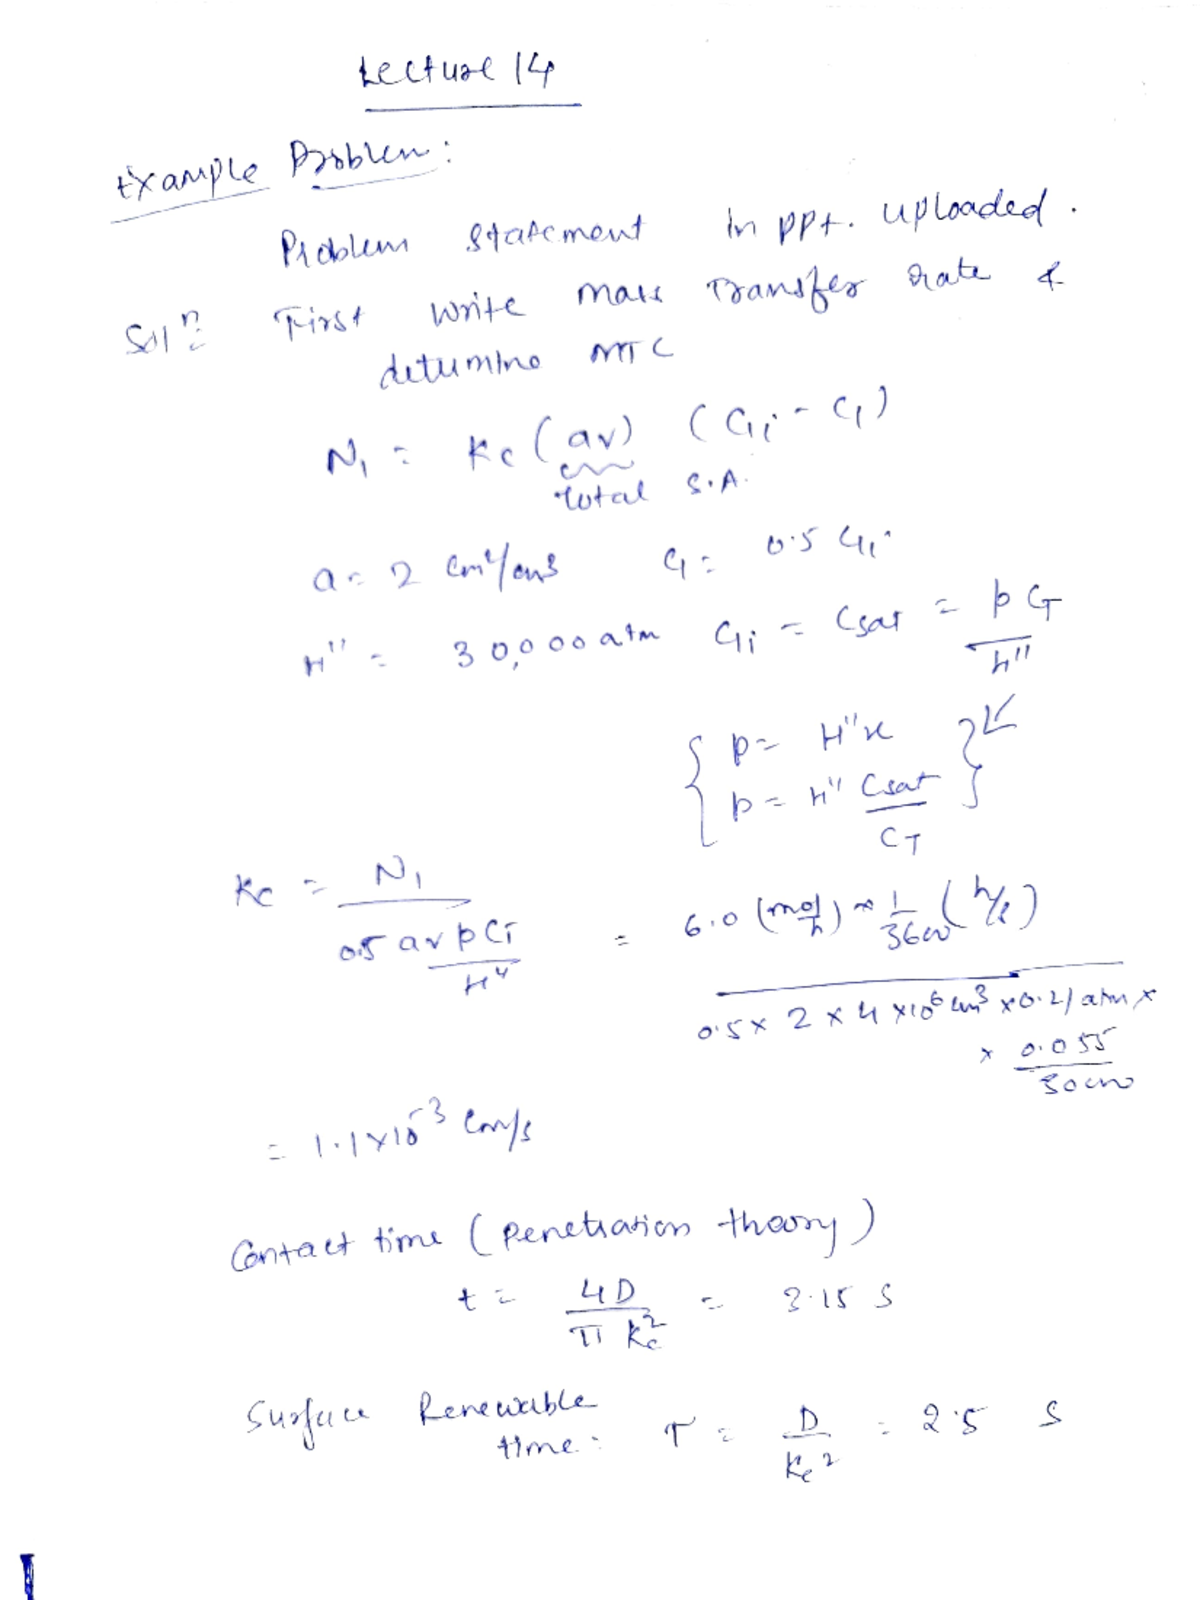 Lecture 14
Example Problem:
Problem statement in ppt. uploaded.
Solⁿ: First write mass transfer rate &
determine MTC
N₁ = Kc (av) (C₁ᵢ - C₁)
total S.A.
a = 2 cm²/cm³ C₁ = 0.5 C₁ᵢ
H'' = 30,000 atm C₁ᵢ = Csat = p CT / H''
{ p = H''x
p = H'' Csat / CT }
Kc = N₁ / (0.5 av p CT / H'') = 6.0 (mol/h) × 1/3600 (h/s)
0.5 × 2 × 4 × 10⁶ cm³ × 0.21 atm ×
× 0.055 / 30000
= 1.1 × 10⁻³ cm/s
Contact time (Penetration theory)
t = 4D / π Kc² = 3.15 s
Surface Renewable
time: τ = D / Kc² = 2.5 s